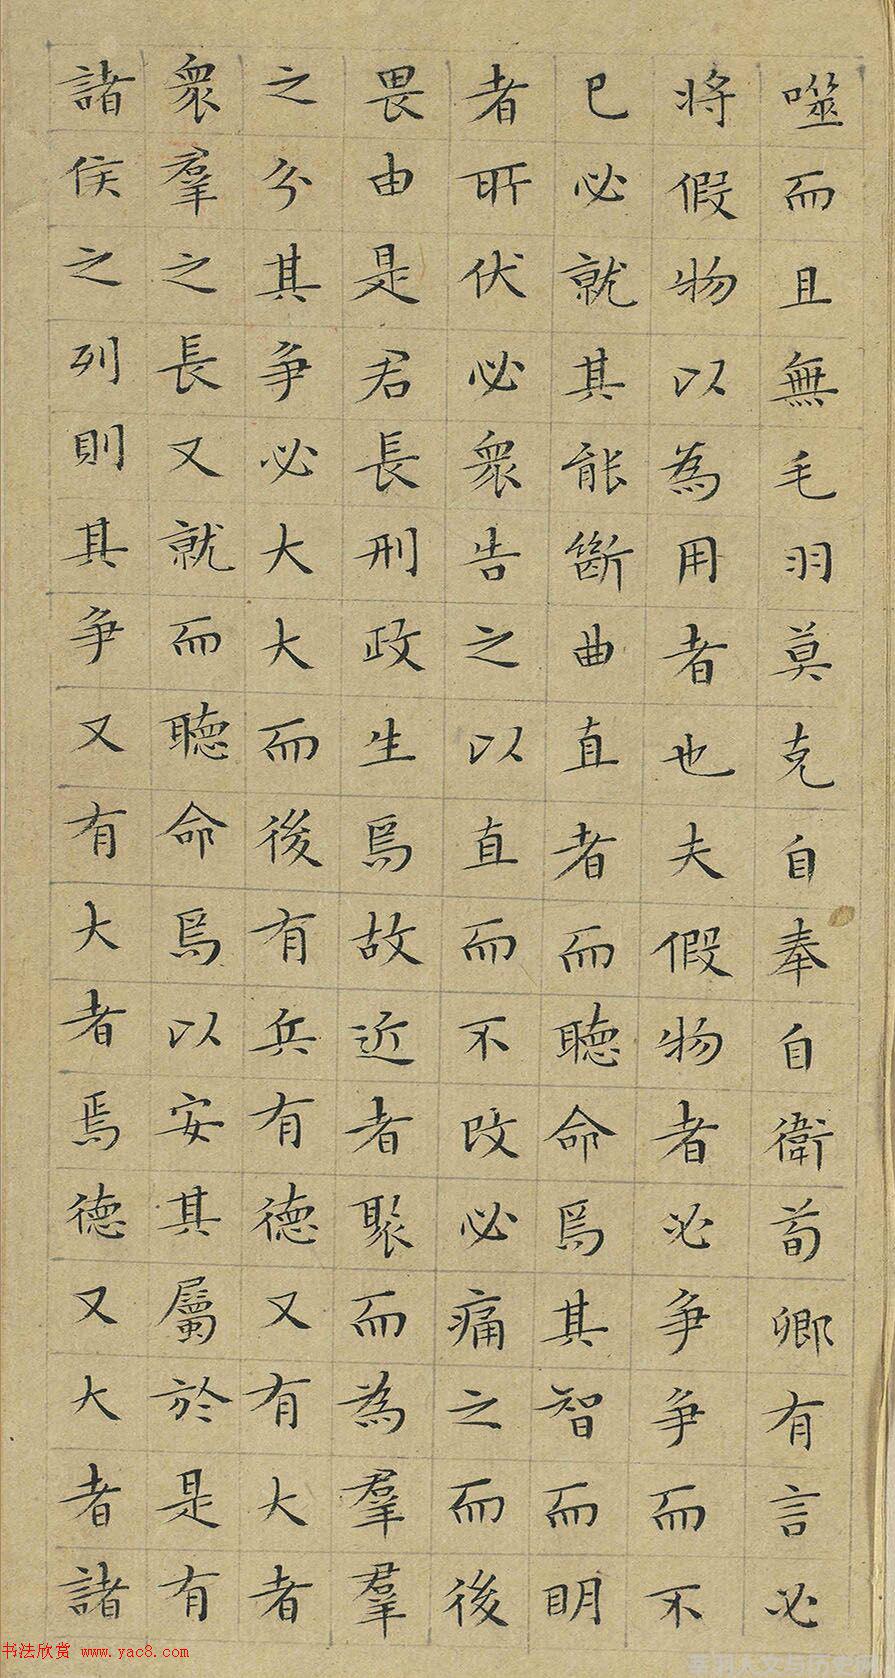 噬而且無毛羽莫克自奉自衛荀卿有言必
將假物以為用者也夫假物者必争争而不
巳必就其能斷曲直者而聽命焉其智而明
者所伏必衆告之以直而不改必痛之而後
畏由是君長刑政生焉故近者聚而為羣羣
之分其争必大大而後有兵有德又有大者
衆羣之長又就而聽命焉以安其屬於是有
諸侯之列則其争又有大者焉德又大者諸
书法欣赏 www.yac8.com